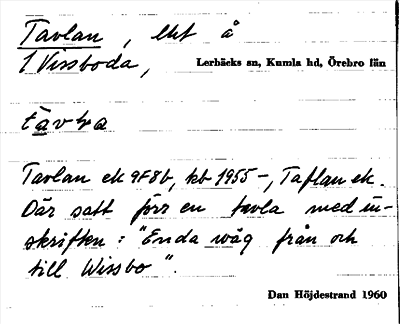 Tavlan, lht å
1 Vissboda, Lerbäcks sn, Kumla hd, Örebro län
tavla
Tavlan ek 9F8b, kb 1955-, Taflan ek.
Där satt förr en tavla med in-
skriften: "Enda wäg från och
till Wissbo".
Dan Höjdestrand 1960